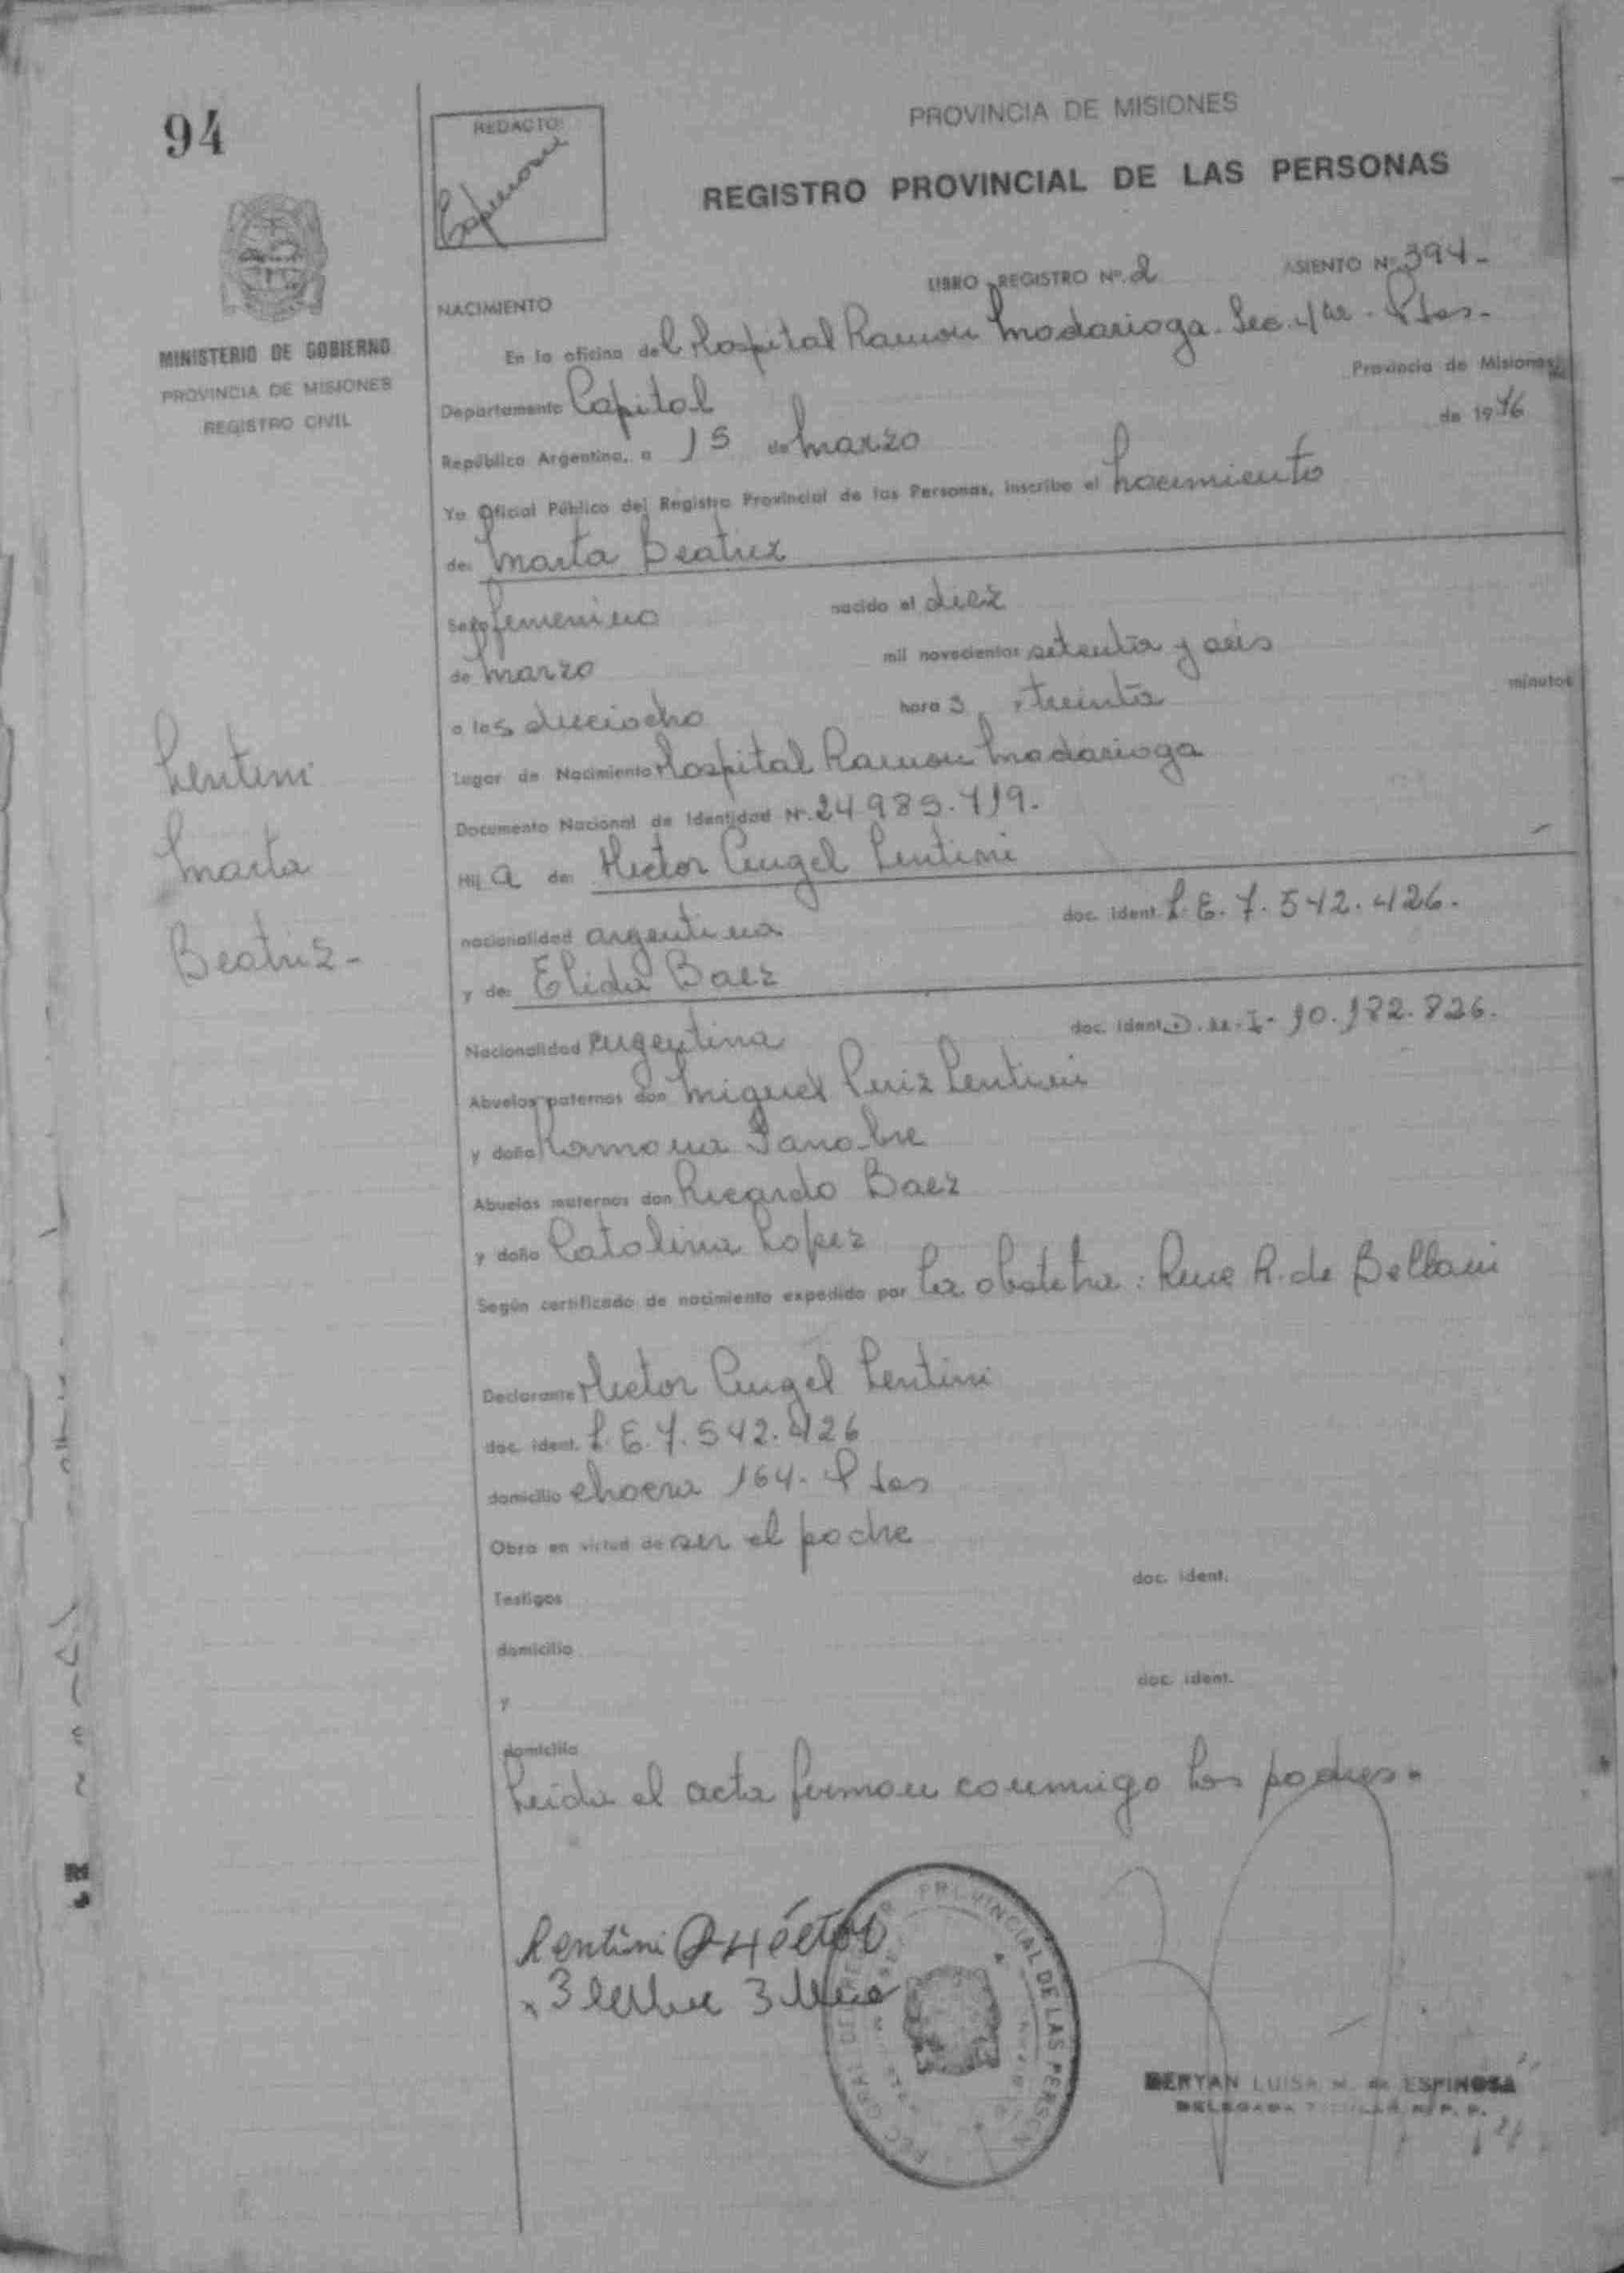 94
REDACTO:
PROVINCIA DE MISIONES
REGISTRO PROVINCIAL DE LAS PERSONAS
MINISTERIO DE GOBIERNO
PROVINCIA DE MISIONES
REGISTRO CIVIL
LIBRO REGISTRO Nº. 2 ASIENTO Nº 394-
NACIMIENTO
En la oficina del Hospital Ramon Madariaga. Sec. 4ta - Pdas.-
Departamento Capital Provincia de Misiones
República Argentina, a 15 de Marzo de 1976
Yo Oficial Público del Registro Provincial de las Personas, inscribo el nacimiento
de: Marta Beatriz
Sexo femenino nacido el diez
de marzo mil novecientos setenta y seis
a las dieciocho hora s, treinta minutos
Lugar de Nacimiento Hospital Ramon Madariaga
Documento Nacional de Identidad Nº. 24.985.419.
Hij a de: Hector Angel Lentini
nacionalidad argentina doc. ident. L.E. 7.542.426.
y de: Elida Baez
Nacionalidad argentina doc. ident. D.N.I. 10.182.826.
Abuelos paternos don Miguel Luiz Lentini
y doña Ramona Sanabre
Abuelos maternos don Ricardo Baez
y doña Catalina Lopez
Según certificado de nacimiento expedido por la obstetra: Rene R. de Bellani
Declarante Hector Angel Lentini
doc. ident. L.E. 7.542.426
domicilio chacra 164- Pdas
Obra en virtud de ser el padre
Testigos doc. ident.
domicilio
y doc. ident.
domicilio
Leida el acta firman conmigo los padres.
Lentini
Marta
Beatriz-
Lentini A Héctor
PROVINCIAL DE LAS PERSON
LUISA M. de ESPINOSA
DELEGADA TITULAR R. P. P.